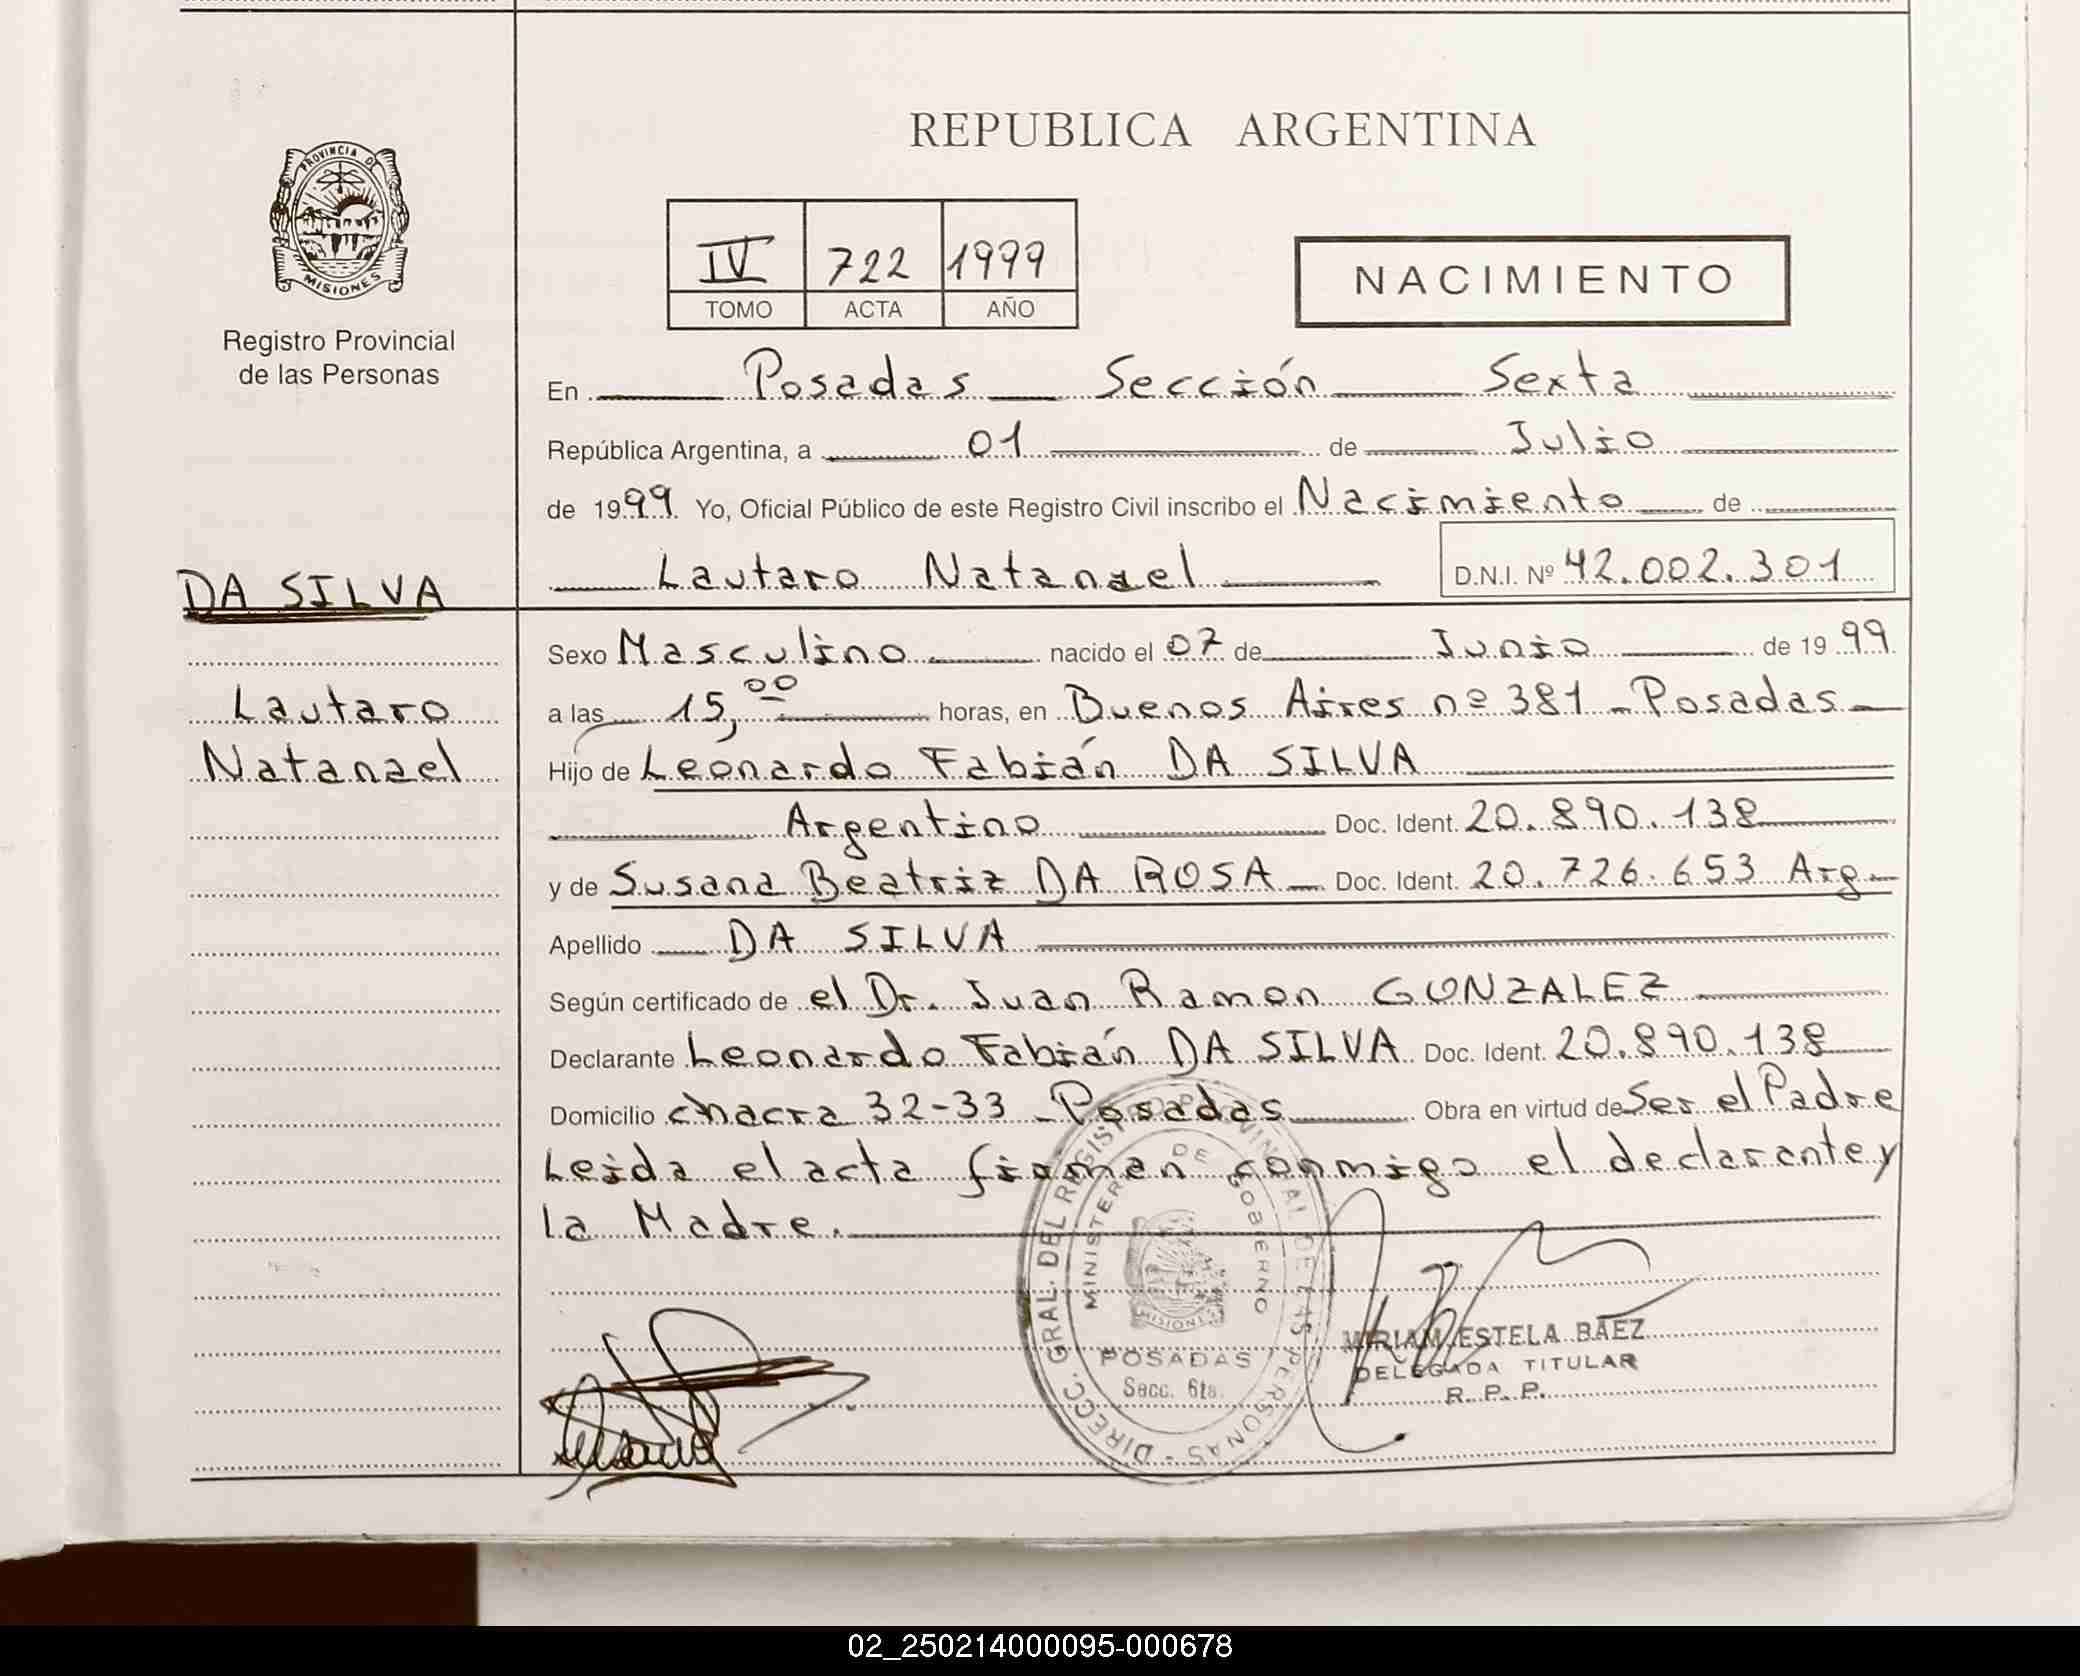 REPUBLICA ARGENTINA
PROVINCIA D
MISIONES
Registro Provincial
de las Personas
IV 722 1999
TOMO ACTA AÑO
NACIMIENTO
En Posadas Sección Sexta
República Argentina, a 01 de Julio
de 1999. Yo, Oficial Público de este Registro Civil inscribo el Nacimiento de
Lautaro Natanael D.N.I. Nº 42.002.301
DA SILVA
Lautaro
Natanael
Sexo Masculino nacido el 07 de Junio de 1999
a las 15,00 horas, en Buenos Aires nº 381 - Posadas
Hijo de Leonardo Fabián DA SILVA
Argentino Doc. Ident. 20.890.138
y de Susana Beatriz DA ROSA Doc. Ident. 20.726.653 Arg.
Apellido DA SILVA
Según certificado de el Dr. Juan Ramon GONZALEZ
Declarante Leonardo Fabián DA SILVA Doc. Ident. 20.890.138
Domicilio chacra 32-33 - Posadas Obra en virtud de Ser el Padre
Leida el acta firman conmigo el declarante y
la Madre.
DIRECC. GRAL. DEL REGISTRO PROVINCIAL DE LAS PERSONAS -
MINISTERIO DE GOBIERNO
MISIONES
POSADAS
Secc. 6ta.
MIRIAM ESTELA BAEZ
DELEGADA TITULAR
R. P. P.
02_250214000095-000678